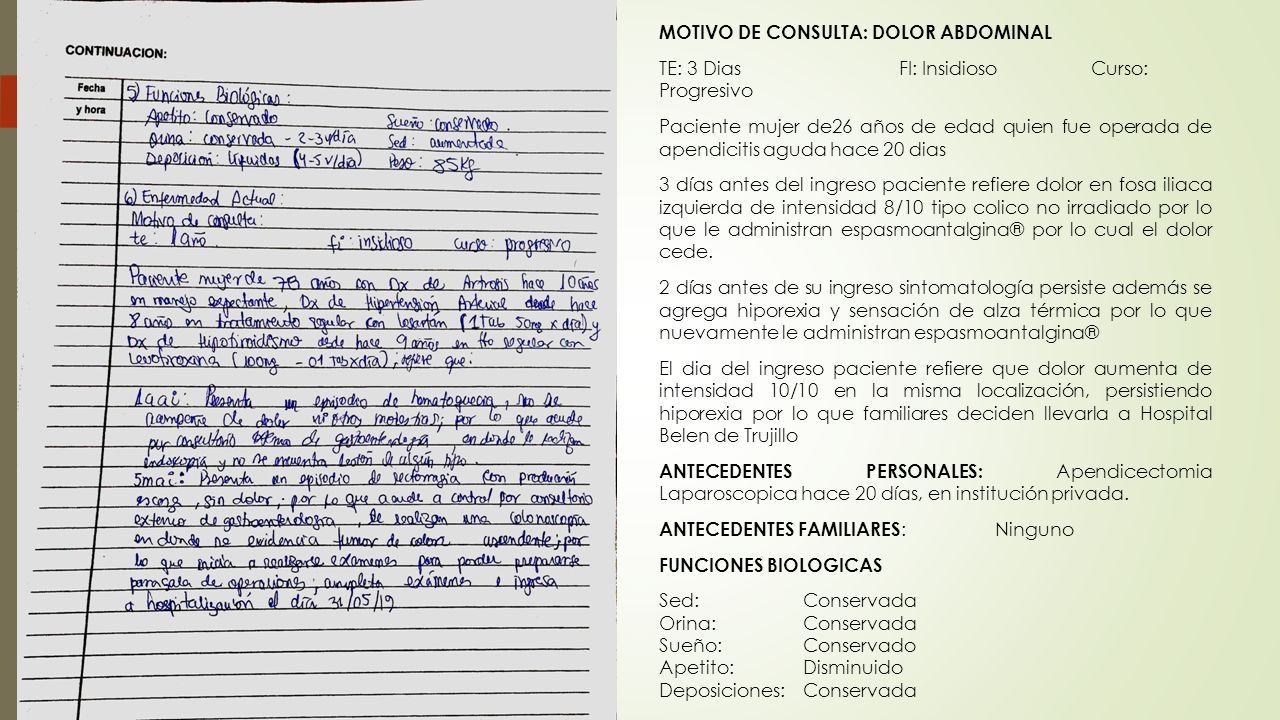 CONTINUACION:
Fecha
y hora
5) Funciones Biológicas:
Apetito: Conservado Sueño: conservado.
Orina: conservada - 2-3v/día Sed: aumentada
Deposición: Líquidas (4-5v/día) Peso: 85Kg
6) Enfermedad Actual:
Motivo de consulta:
te: 1 año fi: insidioso curso: progresivo
Paciente mujer de 78 años con Dx de Artrosis hace 10 años
en manejo expectante, Dx de Hipertensión Arterial desde hace
8 año en tratamiento regular con losartan (1 Tab 50mg x día) y
Dx de Hipotiroidismo desde hace 9 años en tto regular con
Levotiroxina (100mg - 01 Tab x día); refiere que:
1aai: Presenta un episodio de hematoquecia, no se
acompaña de dolor ni otros molestias; por lo que acude
por consultorio externo de gastroenterología, en donde le realizan
endoscopía y no se encuentra lesión de algún tipo.
5mai: Presenta un episodio de rectorragia con producción
escasa, sin dolor; por lo que acude a control por consultorio
externo de gastroenterología, le realizan una colonoscopía
en donde se evidencia tumor de colon ascendente; por
lo que inicia a realizarse examenes para poder prepararse
para sala de operaciones; completa exámenes e ingresa
a hospitalización el día 31/05/19
MOTIVO DE CONSULTA: DOLOR ABDOMINAL
TE: 3 Dias FI: Insidioso Curso:
Progresivo
Paciente mujer de26 años de edad quien fue operada de
apendicitis aguda hace 20 dias
3 días antes del ingreso paciente refiere dolor en fosa iliaca
izquierda de intensidad 8/10 tipo colico no irradiado por lo
que le administran espasmoantalgina® por lo cual el dolor
cede.
2 días antes de su ingreso sintomatología persiste además se
agrega hiporexia y sensación de alza térmica por lo que
nuevamente le administran espasmoantalgina®
El dia del ingreso paciente refiere que dolor aumenta de
intensidad 10/10 en la misma localización, persistiendo
hiporexia por lo que familiares deciden llevarla a Hospital
Belen de Trujillo
ANTECEDENTES PERSONALES: Apendicectomia
Laparoscopica hace 20 días, en institución privada.
ANTECEDENTES FAMILIARES: Ninguno
FUNCIONES BIOLOGICAS
Sed: Conservada
Orina: Conservada
Sueño: Conservado
Apetito: Disminuido
Deposiciones: Conservada